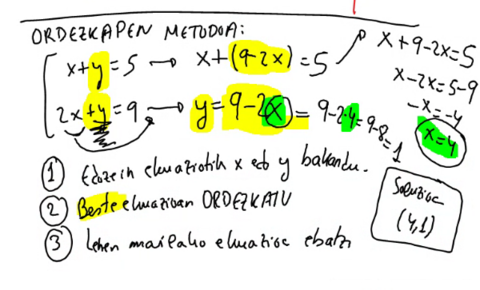 ORDEZKAPEN METODOA:
x+y=5 → x+(9-2x)=5
x+9-2x=5
x-2x=5-9
-x=-4
x=4
2x+y=9 → y=9-2x = 9-2·4=9-8=1
① Edozein ekuaziotik x edo y bakandu.
② Beste ekuazioan ORDEZKATU
③ Lehen mailako ekuazioa ebatzi
Soluzioa
(4,1)